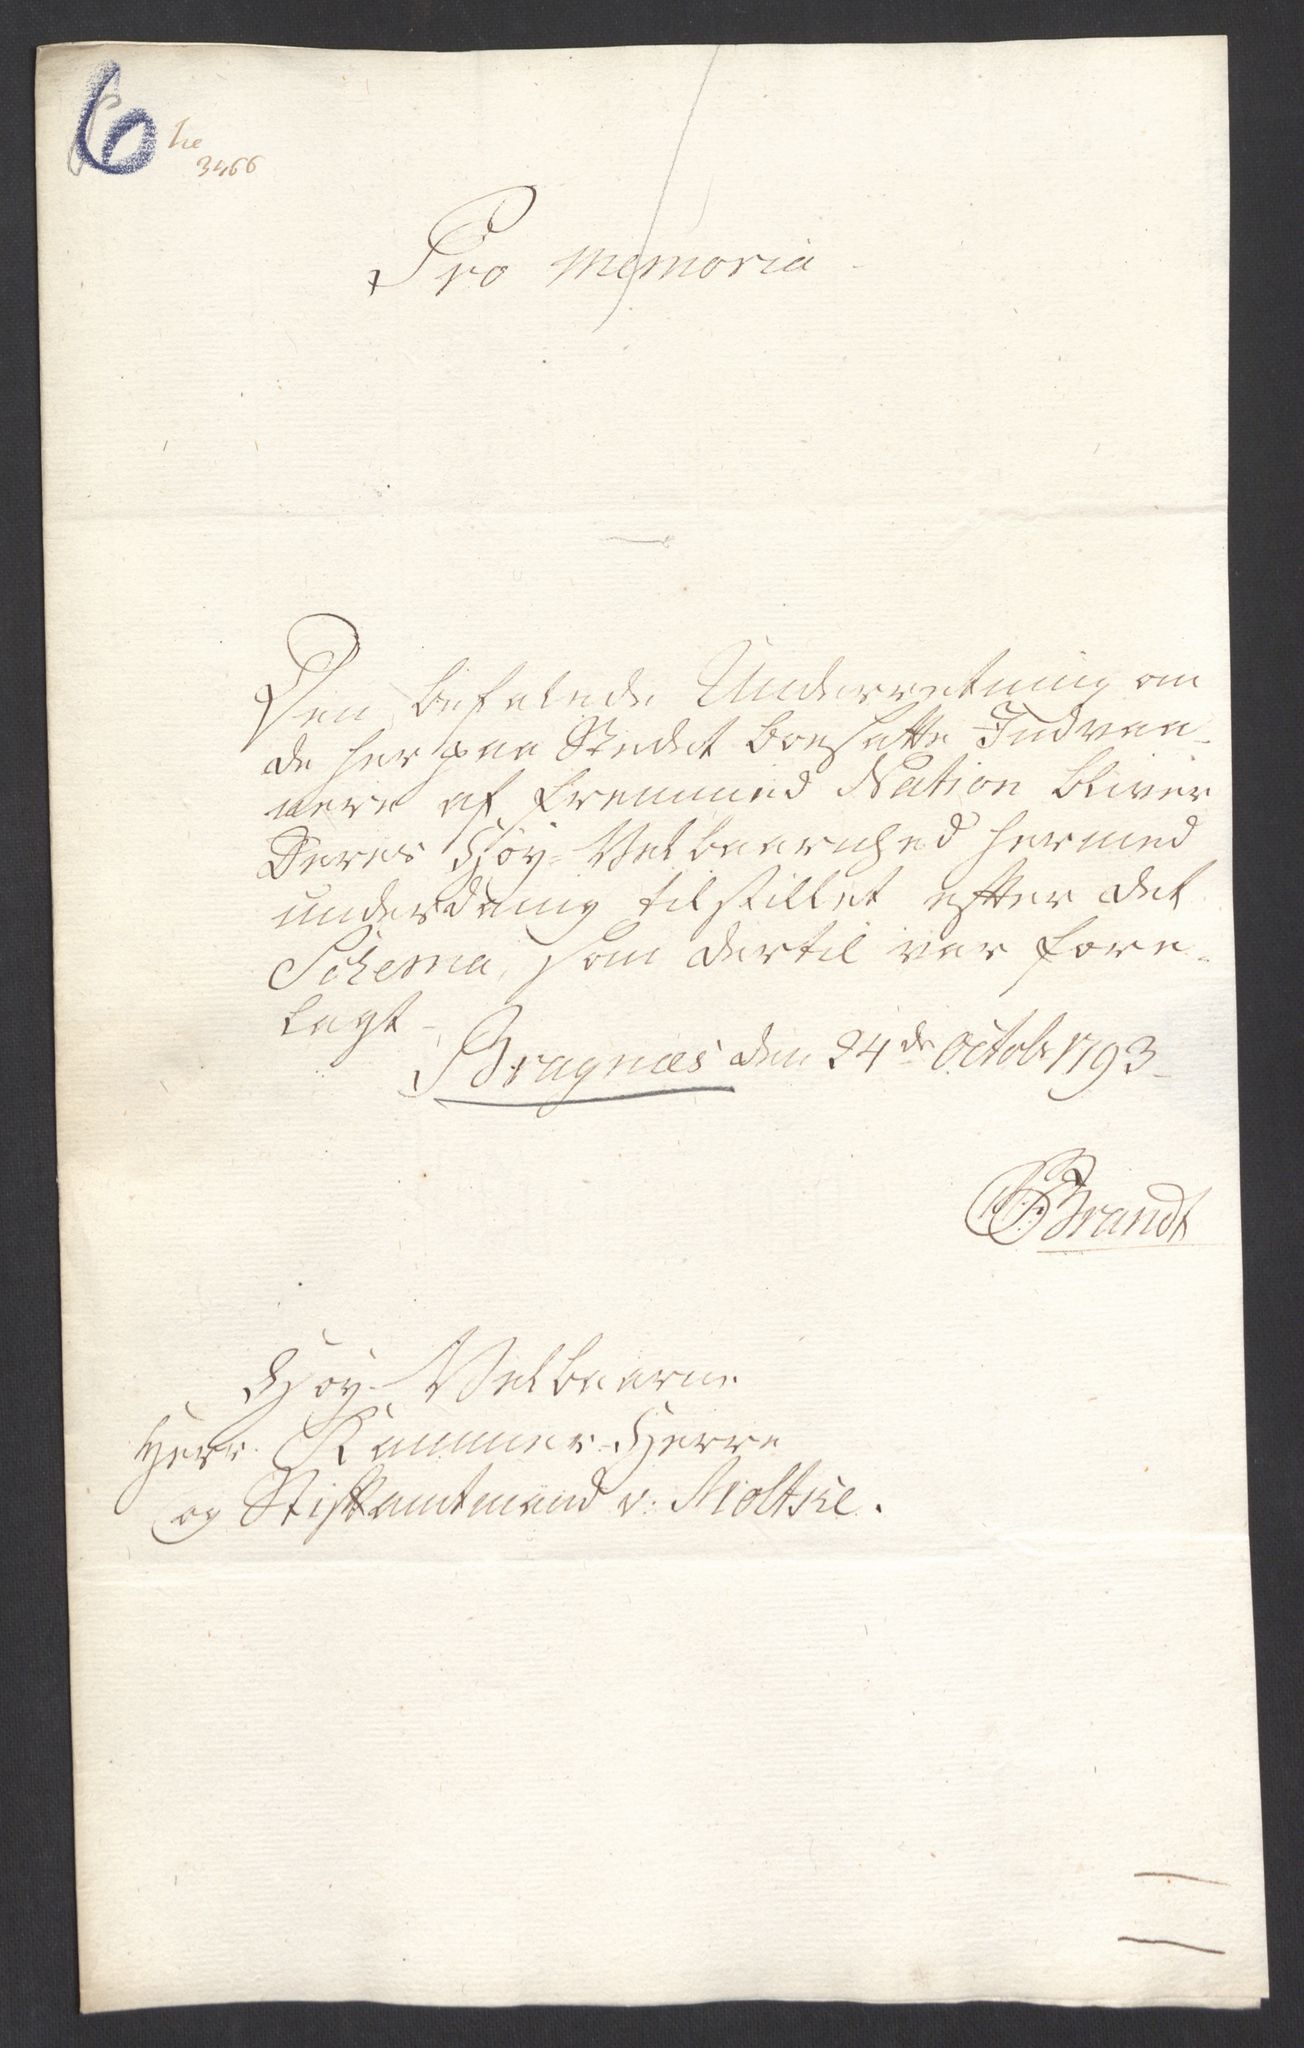 6
3466
Pro Memoria
Den befalede Underretning om
de her paa Stedet boesatte Indvaa-
nere af fremmed Nation bliver
Deres Høy-Velbaarenhed hermed
underdanig tilstillet efter det
Schema, som dertil var fore-
lagt -
Bragnæs den 24de Octobr 1793-
Brandt
Høy-Velbaarne
Herr Kammer-Herre
og Stiftamtmand v: Moltke.